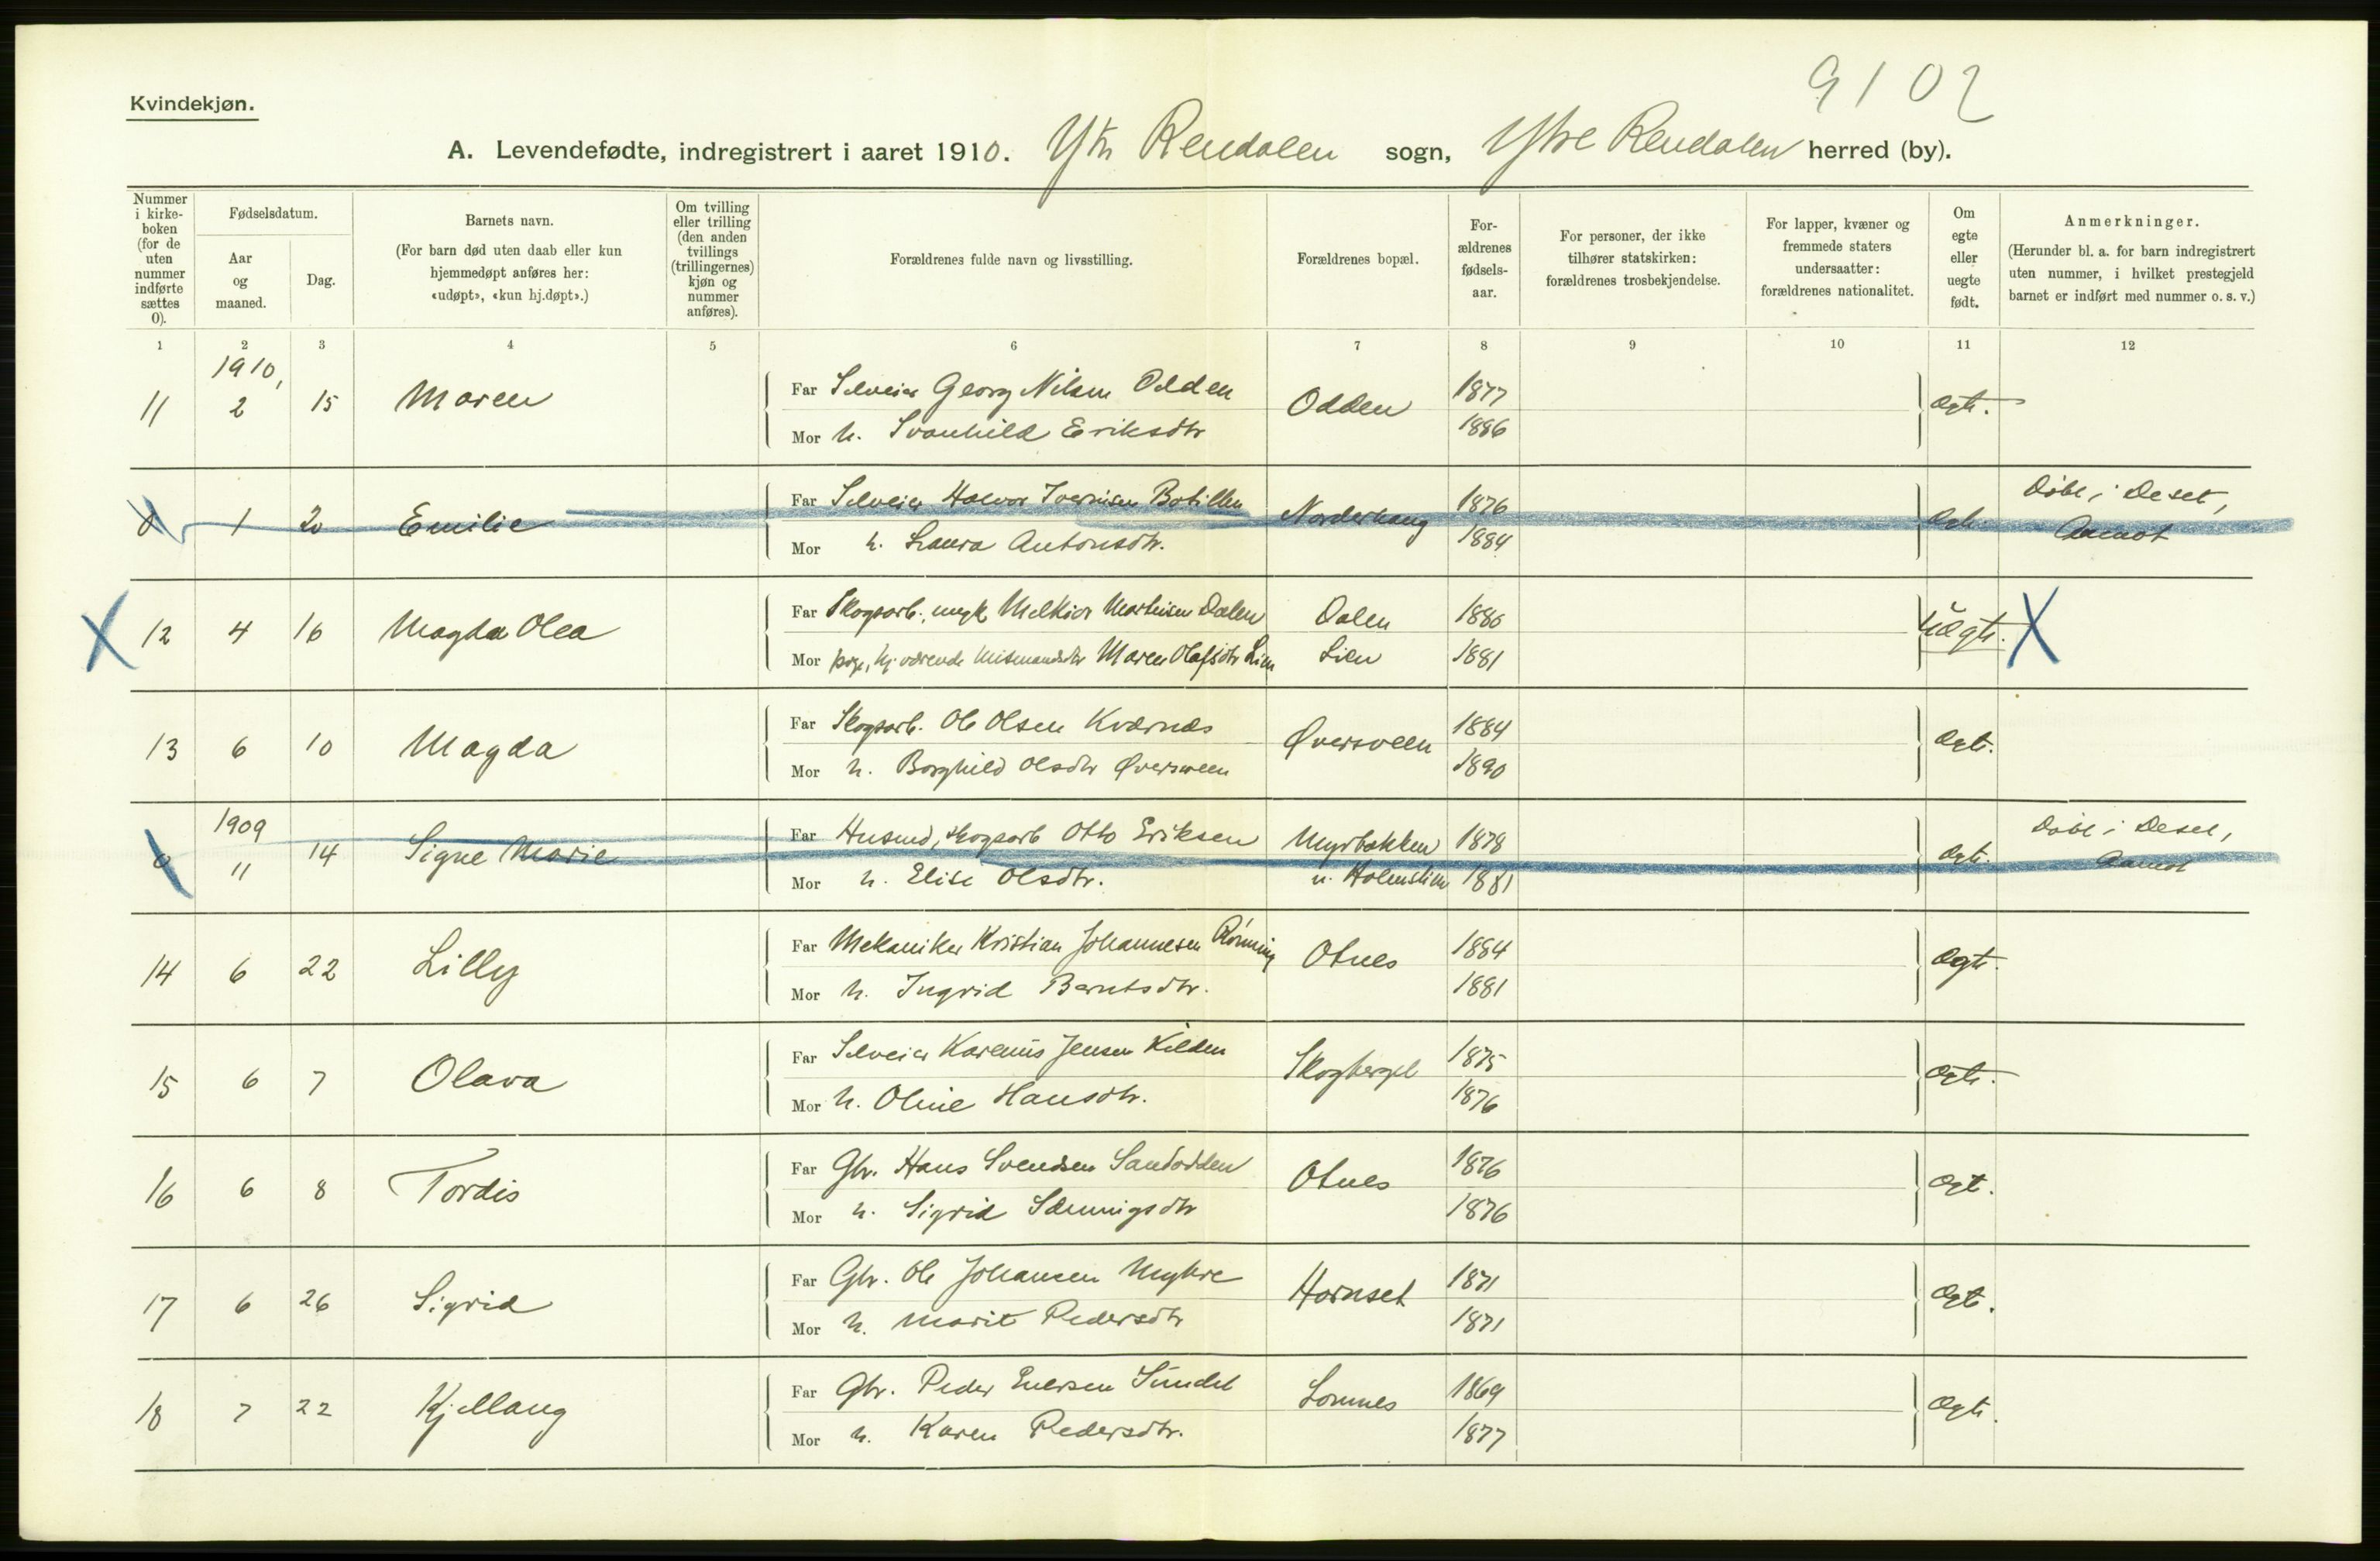 9102
Kvindekjøn.
A. Levendefødte, indregistrert i aaret 1910. Ytr Rendalen sogn, Ytre Rendalen herred (by).
Nummer i kirkeboken (for de uten nummer indførte sættes 0).
Fødselsdatum.
Aar og maaned.
Dag.
Barnets navn.
(For barn død uten daab eller kun hjemmedøpt anføres her: «udøpt», «kun hj.døpt».)
Om tvilling eller trilling (den anden tvillings (trillingernes) kjøn og nummer anføres).
Forældrenes fulde navn og livsstilling.
Forældrenes bopæl.
Forældrenes fødselsaar.
For personer, der ikke tilhører statskirken: forældrenes trosbekjendelse.
For lapper, kvæner og fremmede staters undersaatter: forældrenes nationalitet.
Om egte eller uegte født.
Anmerkninger.
(Herunder bl. a. for barn indregistrert uten nummer, i hvilket prestegjeld barnet er indført med nummer o. s. v.)
1 2 3 4 5 6 7 8 9 10 11 12
1910,
11 2 15 Maren Far Selveier Georg Nilsen Odden Odden 1877 ægte.
Mor h. Svanhild Eriksdtr 1886
0 1 20 Emilie Far Selveier Halvor Iversen Norderhaug 1876 ægte Døbt i Deset, Aamot
Mor h. Laura Antonsdtr. 1884
X 12 4 16 Magda Olea Far Skogsarb., ungk Melkior Martinsen Dalen Dalen 1886 Uægte. X
Mor pige, hj.værende Husmandsdtr Maren Olafsdtr Lien Lien 1881
13 6 10 Magda Far Skogsarb. Ole Olsen Kværnæs Øversveen 1884 ægte.
Mor h. Borghild Olsdtr Øversveen 1890
1909
0 11 14 Signe Marie Far Husmd, skogsarb Otto Eriksen Myrbakken 1878 ægte. Døbt i Deset, Aamot
Mor h. Elise Olsdtr. u. Holmslien 1881
14 6 22 Lilly Far Mekaniker Kristian Johannesen Rønning Otnes 1884 ægte.
Mor h. Ingrid Berntsdtr. 1881
15 6 7 Olava Far Selveier Karenus Jensen Kilden Skogberget 1875 ægte.
Mor h. Oline Hansdtr. 1876
16 6 8 Tordis Far Gbr. Hans Svendsen Sandodden Otnes 1876 ægte.
Mor h. Sigrid Sæmingsdtr 1876
17 6 26 Sigrid Far Gbr. Ole Johansen Myhre Hornset 1871 ægte.
Mor h. Marit Pedersdtr 1871
18 7 22 Kjellaug Far Gbr. Peder Enersen Sundet Lomnes 1869 ægte.
Mor h. Karen Pedersdtr. 1877